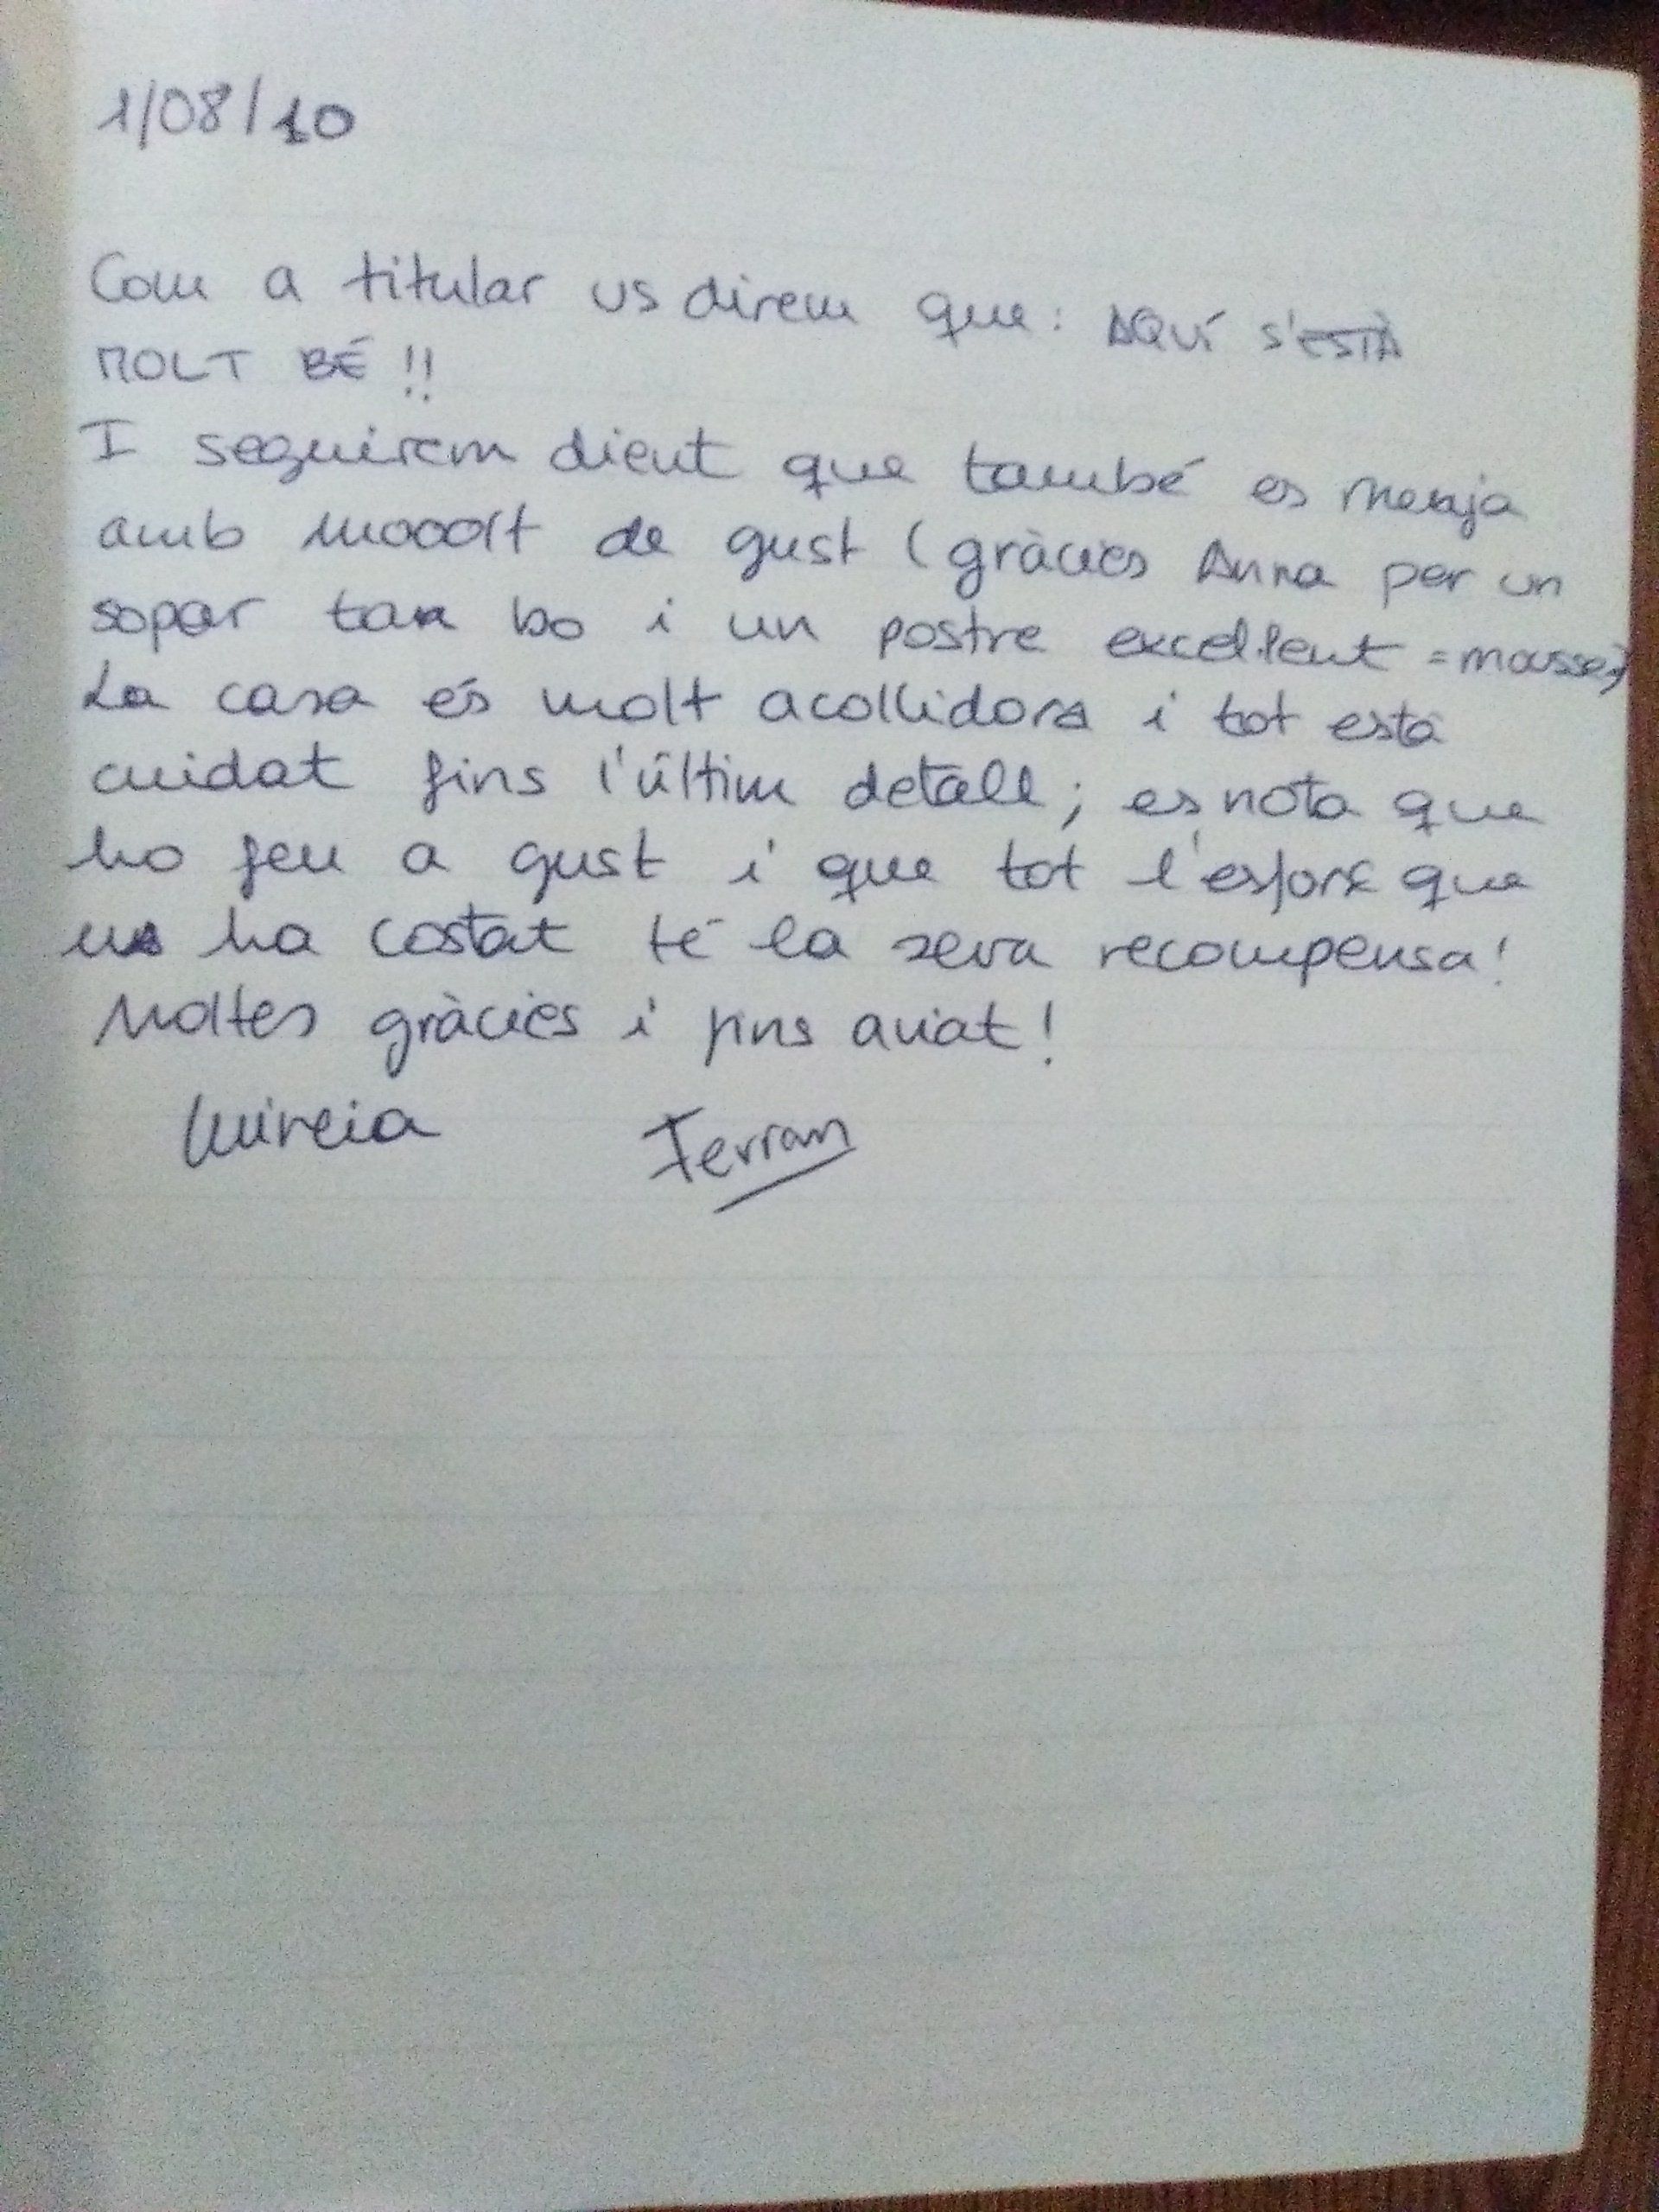 1/08/10
Com a titular us direm que: AQUÍ S'ESTÀ
MOLT BÉ !!
I seguirem dient que també es menja
amb mooolt de gust (gràcies Anna per un
sopar tan bo i un postre excel·lent = mousse)
La casa és molt acollidora i tot està
cuidat fins l'últim detall; es nota que
ho feu a gust i que tot l'esforç que
us ha costat té la seva recompensa!
Moltes gràcies i fins aviat!
Mireia Ferran